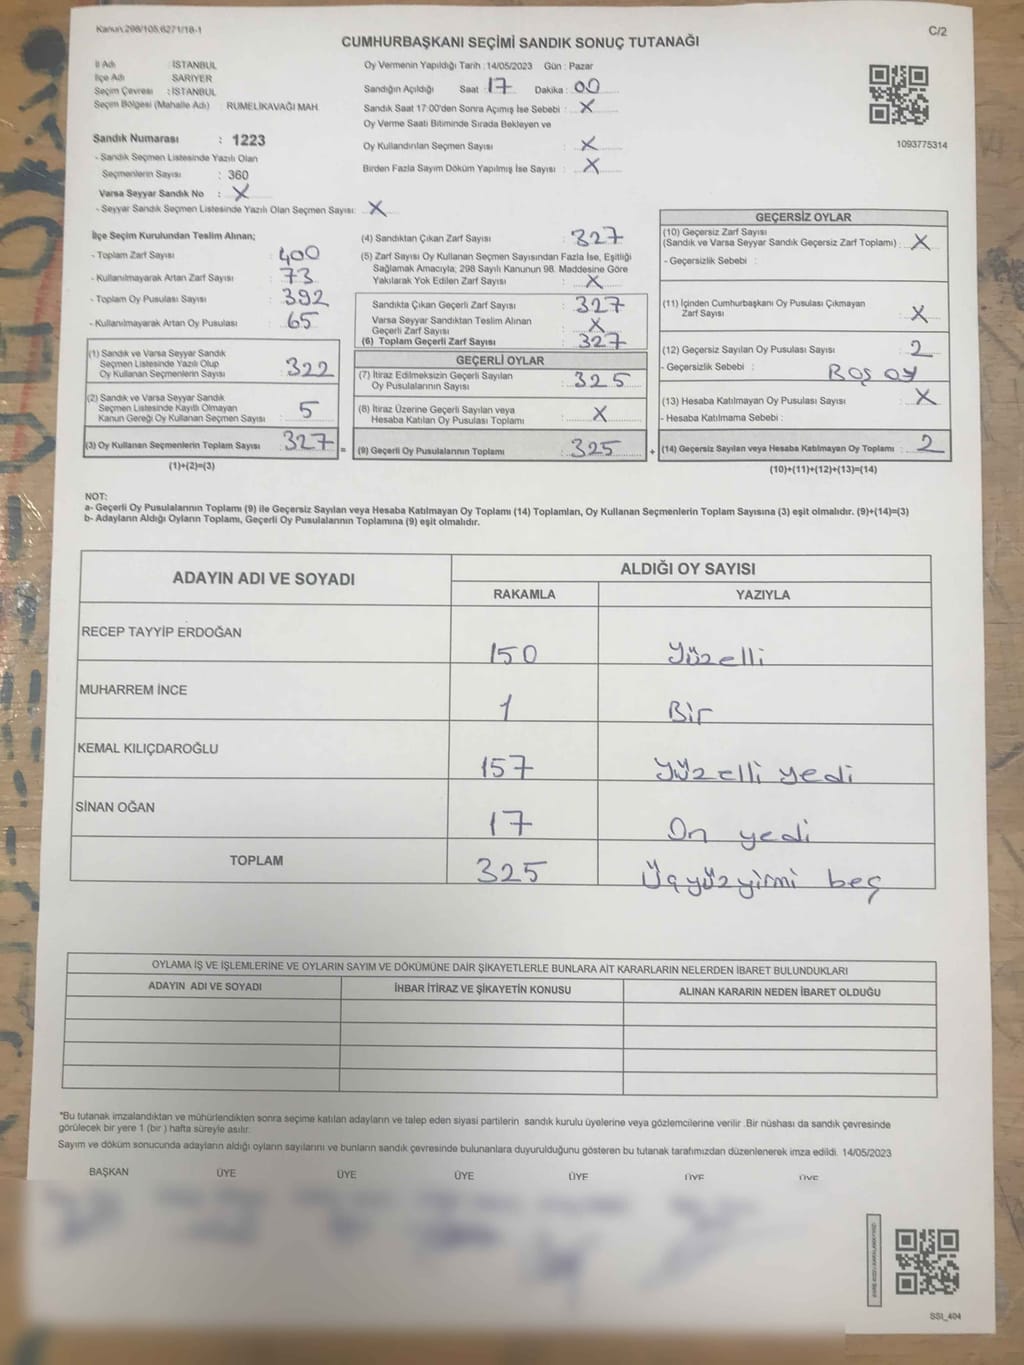 Kanun:298/105,6271/18-1
C/2
CUMHURBAŞKANI SEÇİMİ SANDIK SONUÇ TUTANAĞI
İl Adı : İSTANBUL
İlçe Adı : SARIYER
Seçim Çevresi : İSTANBUL
Seçim Bölgesi (Mahalle Adı) : RUMELİKAVAĞI MAH.
Sandık Numarası : 1223
- Sandık Seçmen Listesinde Yazılı Olan
Seçmenlerin Sayısı : 360
Varsa Seyyar Sandık No : X
- Seyyar Sandık Seçmen Listesinde Yazılı Olan Seçmen Sayısı: X
Oy Vermenin Yapıldığı Tarih :14/05/2023 Gün : Pazar
Sandığın Açıldığı Saat : 17 Dakika : 00
Sandık Saat 17:00'den Sonra Açımış İse Sebebi : X
Oy Verme Saati Bitiminde Sırada Bekleyen ve
Oy Kullandırılan Seçmen Sayısı : X
Birden Fazla Sayım Döküm Yapılmış İse Sayısı : X
1093775314
İlçe Seçim Kurulundan Teslim Alınan;
- Toplam Zarf Sayısı : 400
- Kullanılmayarak Artan Zarf Sayısı : 73
- Toplam Oy Pusulası Sayısı : 392
- Kullanılmayarak Artan Oy Pusulası : 65
(1) Sandık ve Varsa Seyyar Sandık
Seçmen Listesinde Yazılı Olup
Oy Kullanan Seçmenlerin Sayısı : 322
(2) Sandık ve Varsa Seyyar Sandık
Seçmen Listesinde Kayıtlı Olmayan
Kanun Gereği Oy Kullanan Seçmen Sayısı : 5
(3) Oy Kullanan Seçmenlerin Toplam Sayısı : 327 =
(1)+(2)=(3)
(4) Sandıktan Çıkan Zarf Sayısı : 327
(5) Zarf Sayısı Oy Kullanan Seçmen Sayısından Fazla İse, Eşitliği
Sağlamak Amacıyla; 298 Sayılı Kanunun 98. Maddesine Göre
Yakılarak Yok Edilen Zarf Sayısı : X
Sandıkta Çıkan Geçerli Zarf Sayısı : 327
Varsa Seyyar Sandıktan Teslim Alınan
Geçerli Zarf Sayısı : X
(6) Toplam Geçerli Zarf Sayısı : 327
GEÇERLİ OYLAR
(7) İtiraz Edilmeksizin Geçerli Sayılan
Oy Pusulalarının Sayısı : 325
(8) İtiraz Üzerine Geçerli Sayılan veya
Hesaba Katılan Oy Pusulası Toplamı : X
(9) Geçerli Oy Pusulalarının Toplamı : 325 +
GEÇERSİZ OYLAR
(10) Geçersiz Zarf Sayısı
(Sandık ve Varsa Seyyar Sandık Geçersiz Zarf Toplamı) : X
- Geçersizlik Sebebi :
(11) İçinden Cumhurbaşkanı Oy Pusulası Çıkmayan
Zarf Sayısı : X
(12) Geçersiz Sayılan Oy Pusulası Sayısı : 2
- Geçersizlik Sebebi : Boş oy
(13) Hesaba Katılmayan Oy Pusulası Sayısı : X
- Hesaba Katılmama Sebebi :
(14) Geçersiz Sayılan veya Hesaba Katılmayan Oy Toplamı : 2
(10)+(11)+(12)+(13)=(14)
NOT:
a- Geçerli Oy Pusulalarının Toplamı (9) ile Geçersiz Sayılan veya Hesaba Katılmayan Oy Toplamı (14) Toplamları, Oy Kullanan Seçmenlerin Toplam Sayısına (3) eşit olmalıdır. (9)+(14)=(3)
b- Adayların Aldığı Oyların Toplamı, Geçerli Oy Pusulalarının Toplamına (9) eşit olmalıdır.
ADAYIN ADI VE SOYADI ALDIĞI OY SAYISI
RAKAMLA YAZIYLA
RECEP TAYYİP ERDOĞAN 150 Yüzelli
MUHARREM İNCE 1 Bir
KEMAL KILIÇDAROĞLU 157 Yüzelli yedi
SİNAN OĞAN 17 On yedi
TOPLAM 325 Üçyüzyirmi beş
OYLAMA İŞ VE İŞLEMLERİNE VE OYLARIN SAYIM VE DÖKÜMÜNE DAİR ŞİKAYETLERLE BUNLARA AİT KARARLARIN NELERDEN İBARET BULUNDUKLARI
ADAYIN ADI VE SOYADI İHBAR İTİRAZ VE ŞİKAYETİN KONUSU ALINAN KARARIN NEDEN İBARET OLDUĞU
*Bu tutanak imzalandıktan ve mühürlendikten sonra seçime katılan adayların ve talep eden siyasi partilerin sandık kurulu üyelerine veya gözlemcilerine verilir .Bir nüshası da sandık çevresinde
görülecek bir yere 1 (bir ) hafta süreyle asılır.
Sayım ve döküm sonucunda adayların aldığı oyların sayılarını ve bunların sandık çevresinde bulunanlara duyurulduğunu gösteren bu tutanak tarafımızdan düzenlenerek imza edildi. 14/05/2023
BAŞKAN ÜYE ÜYE ÜYE ÜYE ÜYE ÜYE
SSI_404